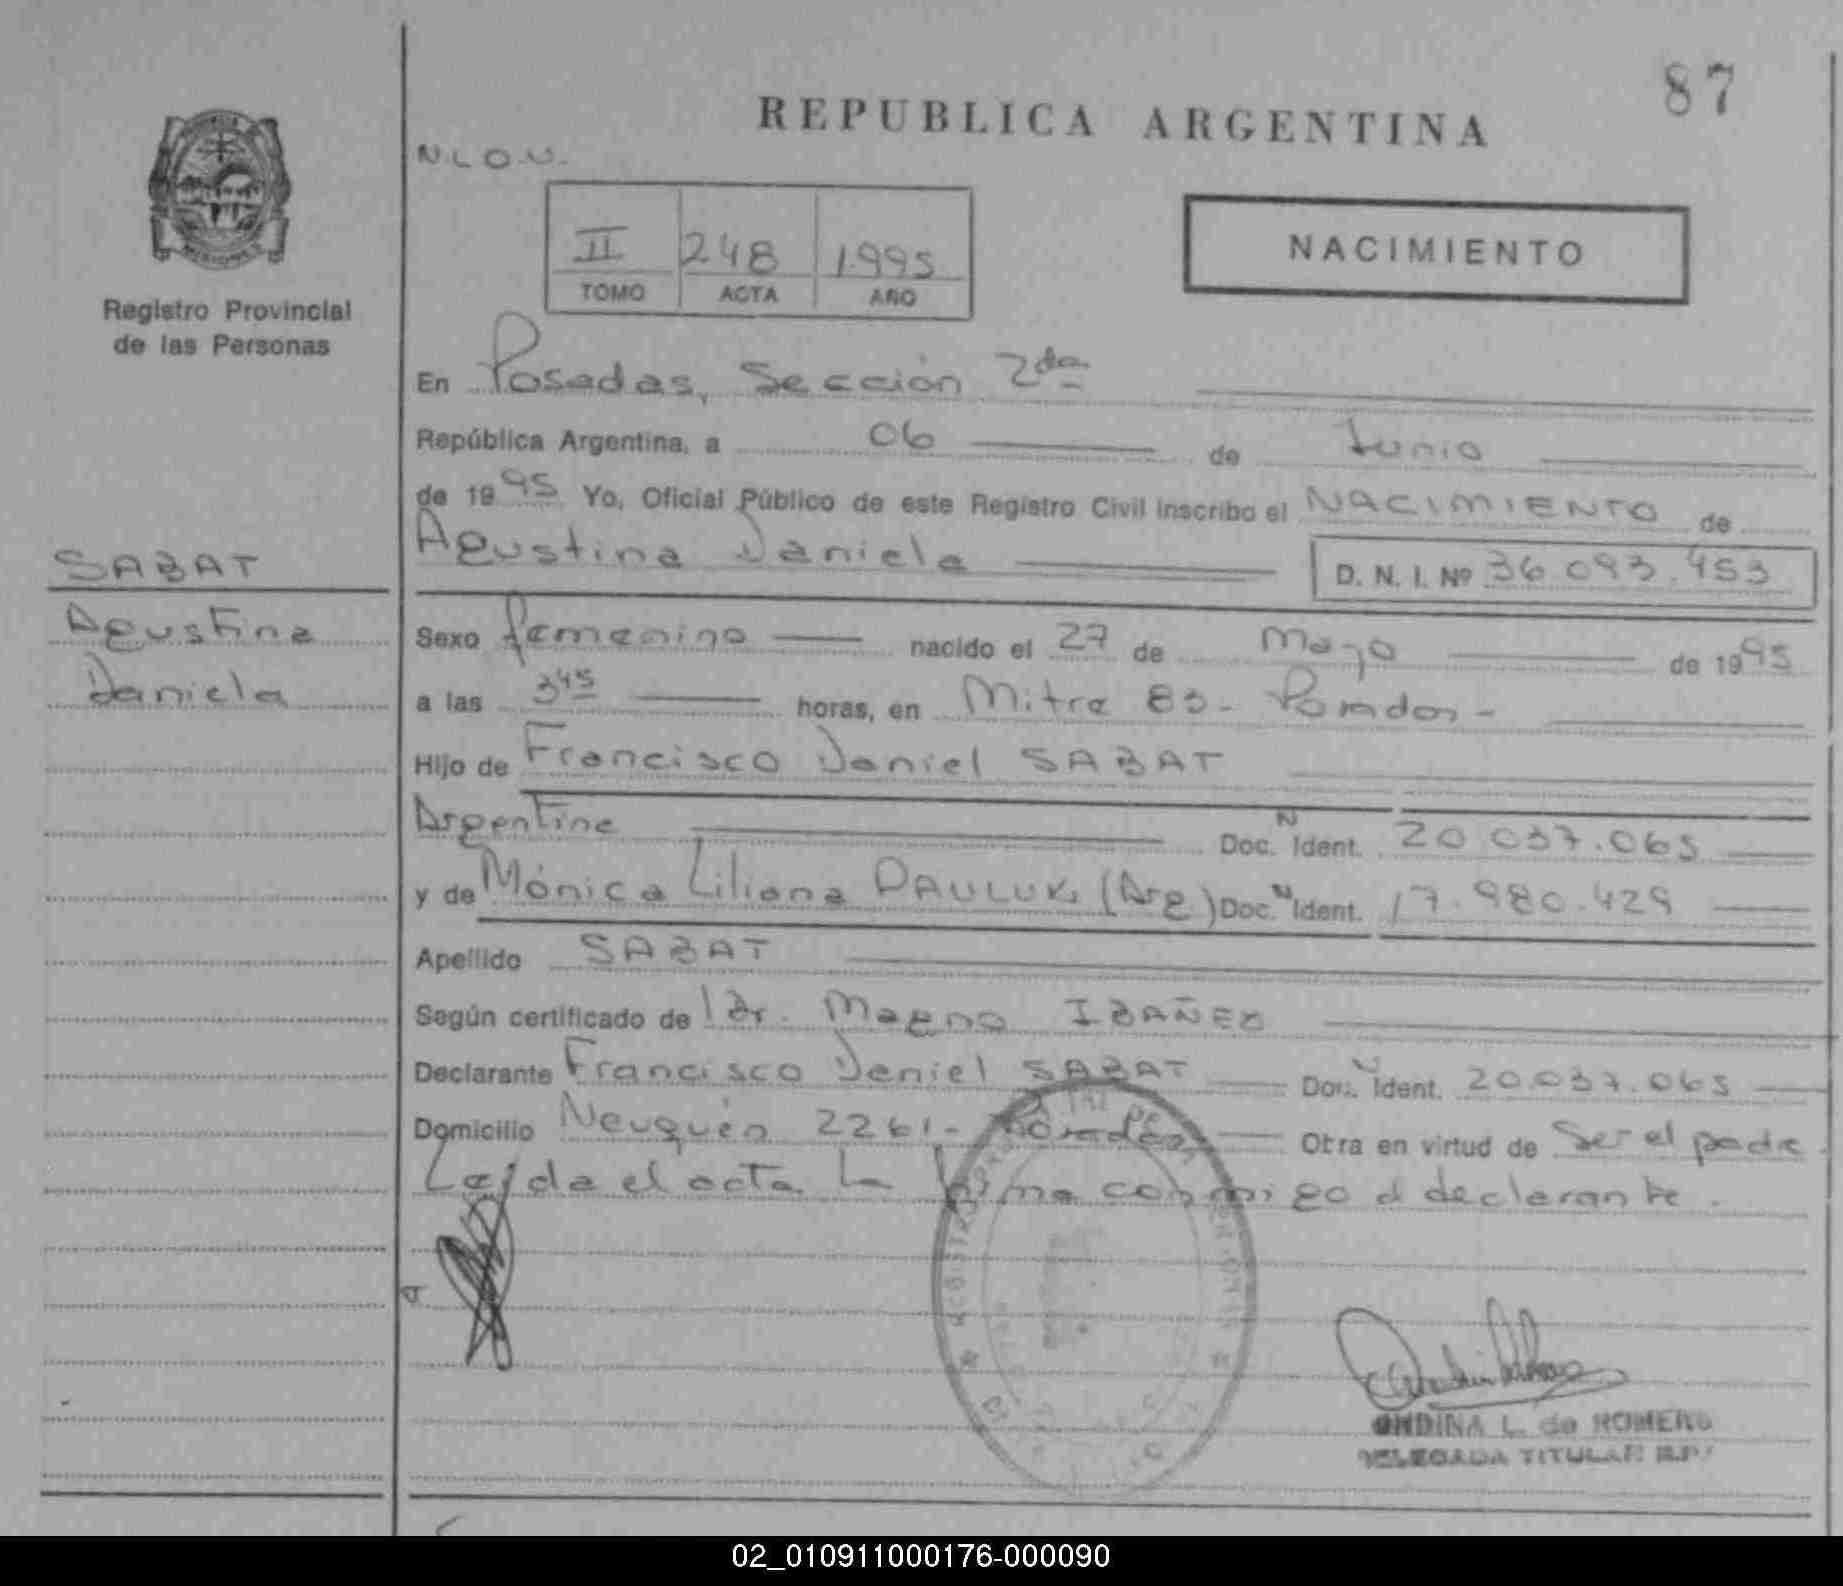 87
REPUBLICA ARGENTINA
N.L.O.U.
II 248 1.995
TOMO ACTA AÑO
NACIMIENTO
Registro Provincial
de las Personas
En Posadas, Sección 2da
República Argentina, a 06 de Junio
de 1995 Yo, Oficial Público de este Registro Civil inscribo el NACIMIENTO de
Agustina Daniela D. N. I. Nº 36.093.453
SABAT
Agustina
Daniela
Sexo femenino nacido el 27 de Mayo de 1995
a las 3 45 horas, en Mitre 83- Posadas-
Hijo de Francisco Daniel SABAT
Argentino Doc. N Ident. 20.037.065
y de Mónica Liliana PAULUK (Arg) Doc. N Ident. 17.980.429
Apellido SABAT
Según certificado de Dr. Magno IBAÑEZ
Declarante Francisco Daniel SABAT Doc. N Ident. 20.037.065
Domicilio Neuquén 2261- Posadas Otra en virtud de Ser el padre.
Leída el acta la firma conmigo el declarante.
ONDINA L. de ROMERO
DELEGADA TITULAR R.P.
02_010911000176-000090